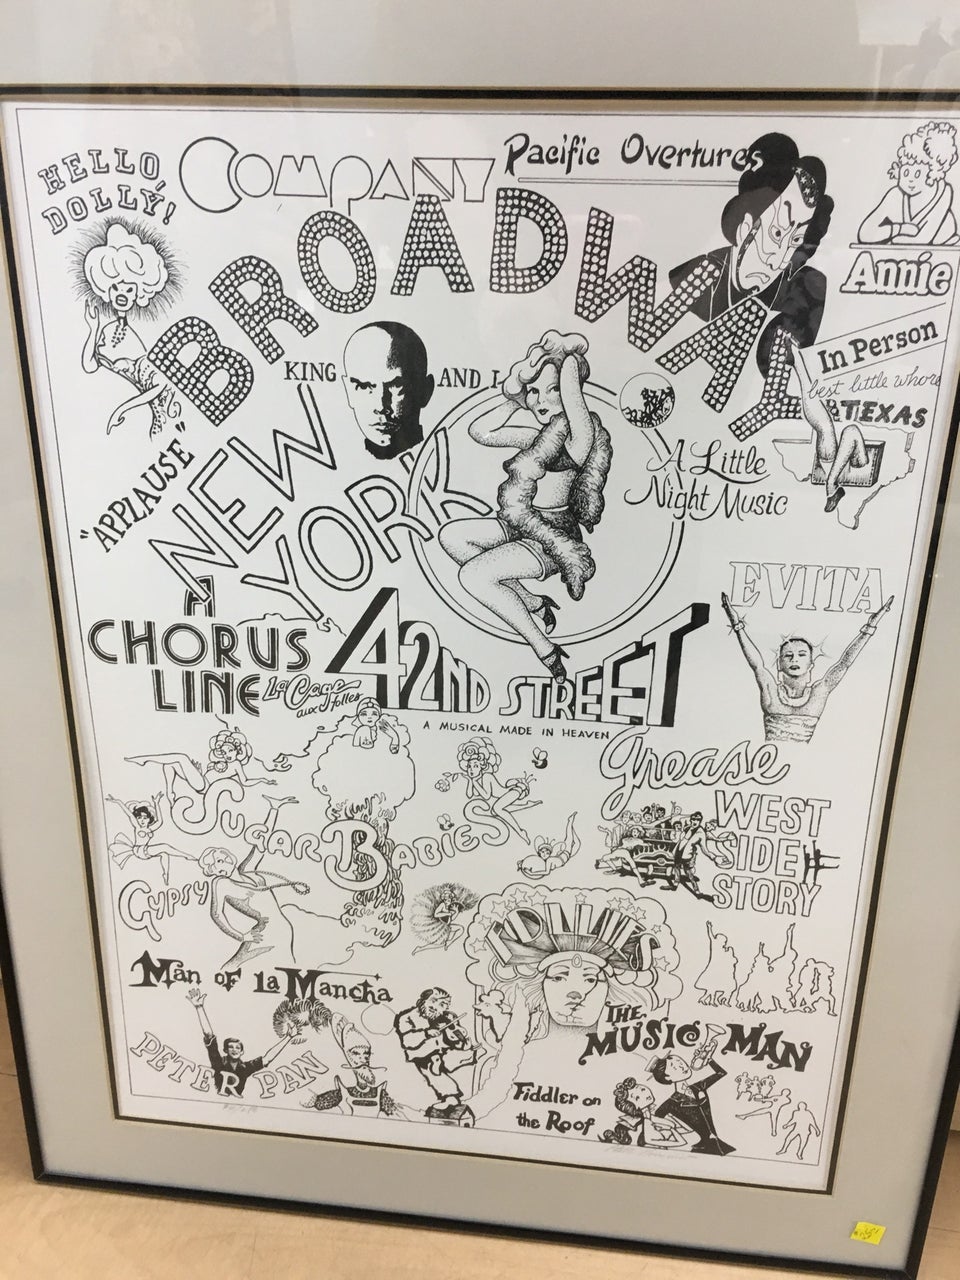 HELLO,
DOLLY!
COMPANY
Pacific Overtures
BROADWAY
Annie
KING AND I
In Person
best little whore
TEXAS
"APPLAUSE"
NEW
YORK
A Little
Night Music
EVITA
A
CHORUS
LINE
La Cage
aux folles
42ND STREET
A MUSICAL MADE IN HEAVEN
Grease
WEST
SIDE
STORY
SUGAR BABIES
GYPSY
FOLLIES
Man of la Mancha
THE
MUSIC MAN
PETER PAN
Fiddler on
the Roof